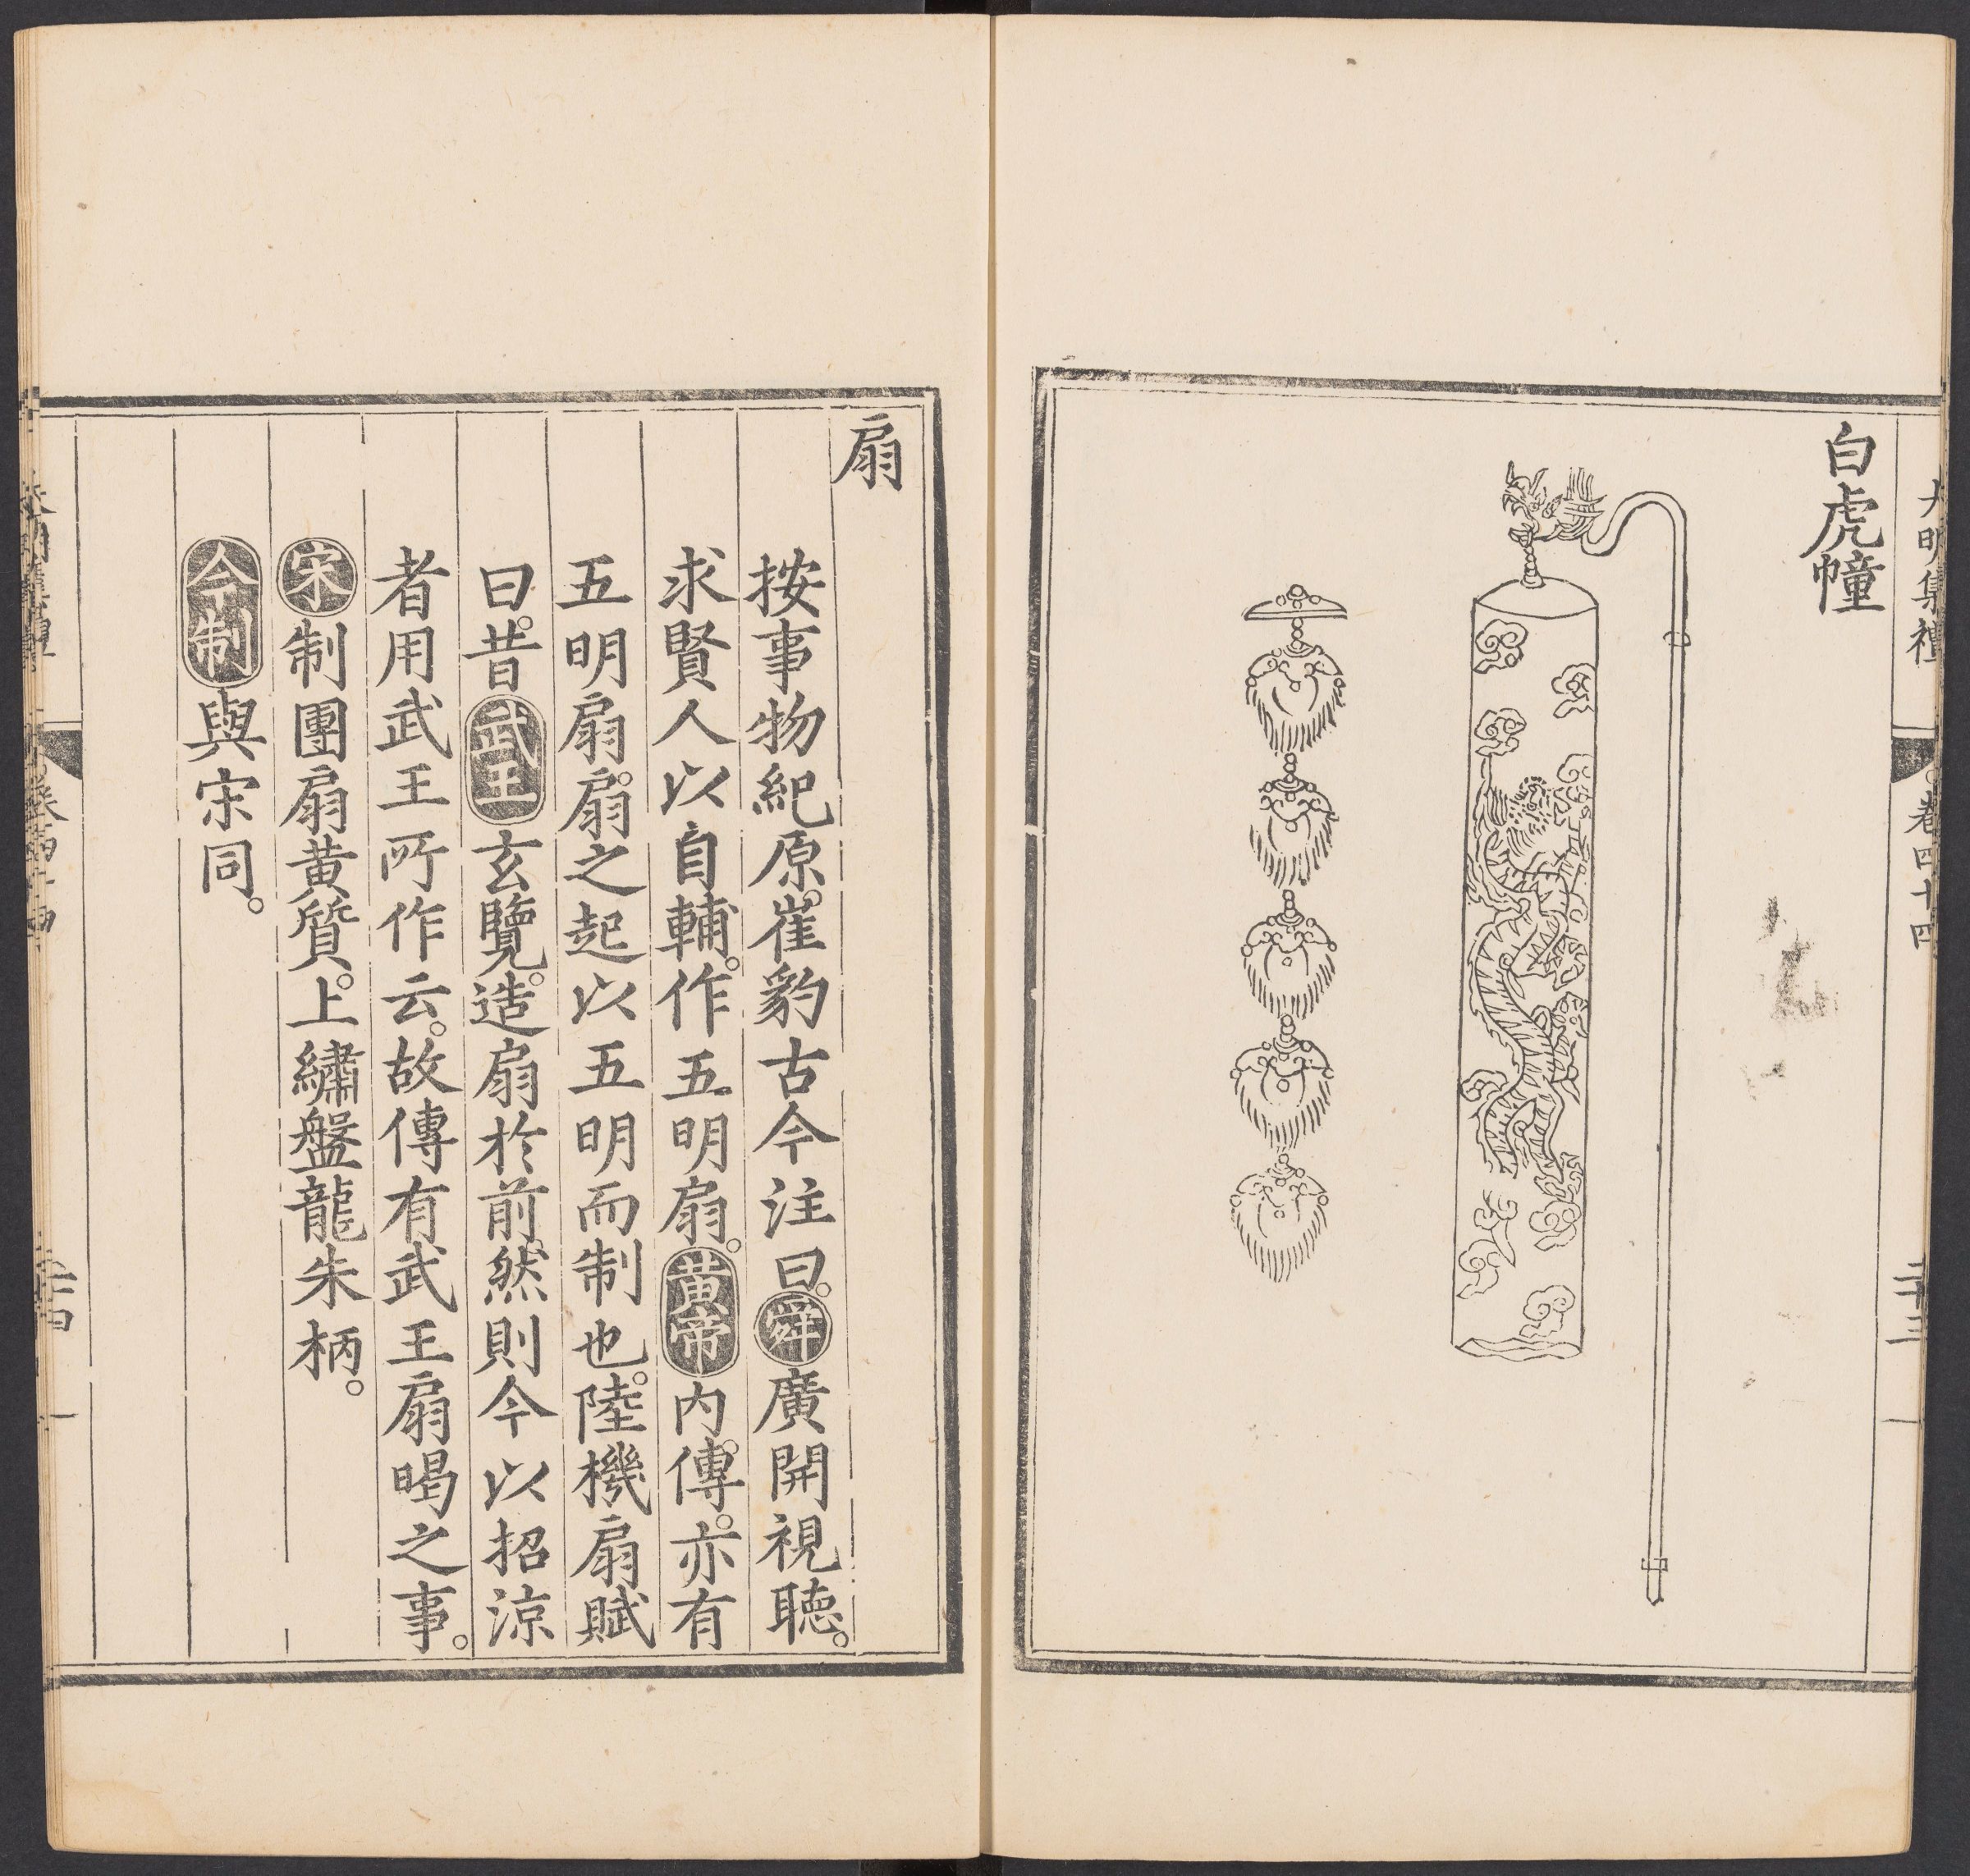 大明集禮 卷四十四 二十三
白虎幢
扇
按事物紀原。崔豹古今注曰。舜廣開視聽。
求賢人以自輔。作五明扇。黃帝內傳。亦有
五明扇。扇之起以五明而制也。陸機扇賦
曰。昔武王玄覽。造扇於前。然則今以招涼
者用武王所作云。故傳有武王扇暍之事。
宋制團扇黃質。上繡盤龍朱柄。
今制與宋同。